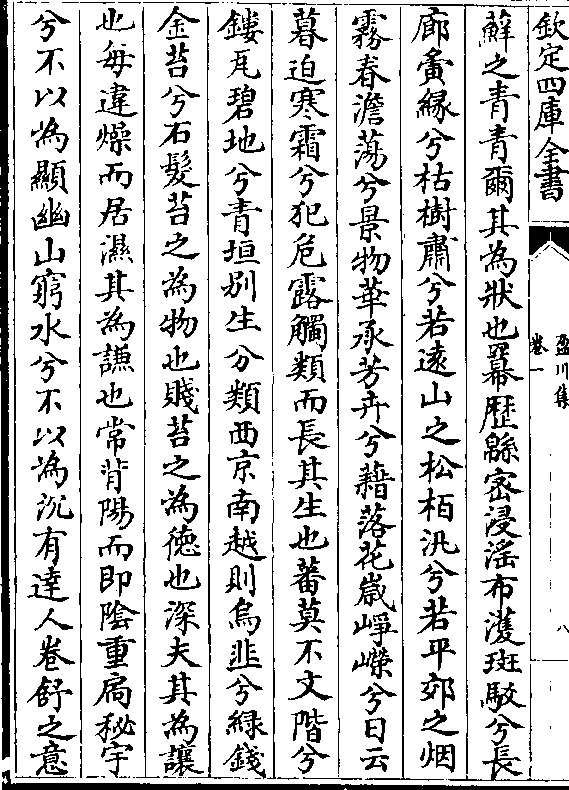 欽定四庫全書
盈川集
卷一
八
蘚之青青爾其為狀也羃歷緜密浸淫布濩斑駁兮長
廊夤緣兮枯樹肅兮若遠山之松栢汎兮若平郊之烟
霧春澹蕩兮景物華承芳卉兮藉落花歲崢嶸兮日云
暮迫寒霜兮犯危露觸類而長其生也蕃莫不文階兮
鏤瓦碧地兮青垣别生分類西京南越則烏韭兮綠錢
金苔兮石髮苔之為物也賤苔之為德也深夫其為讓
也每違燥而居濕其為謙也常背陽而即陰重扃秘宇
兮不以為顯幽山窮水兮不以為沉有達人卷舒之意